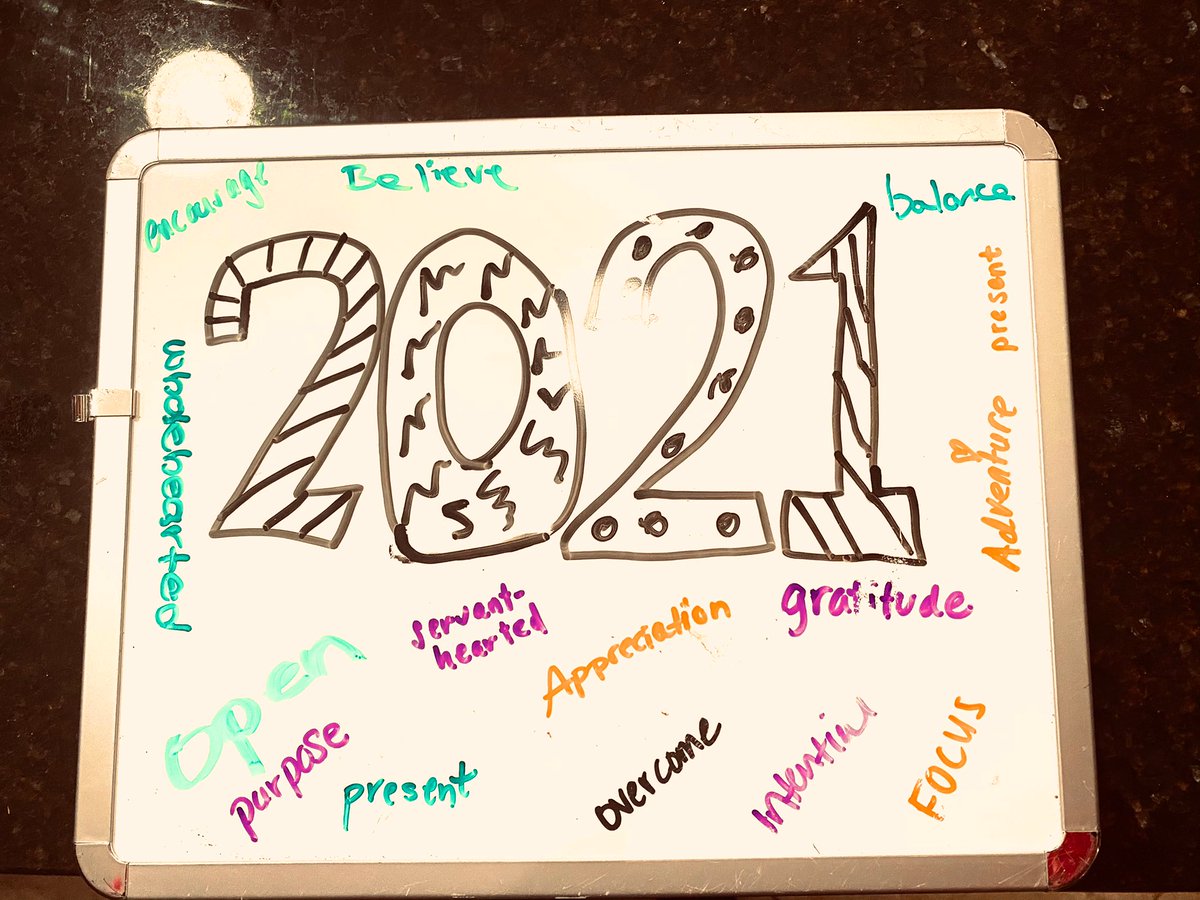 encourage
Believe
balance
present
2021
wholehearted
Adventure
servant-
hearted
Appreciation
gratitude
open
purpose
present
overcome
FOCUS